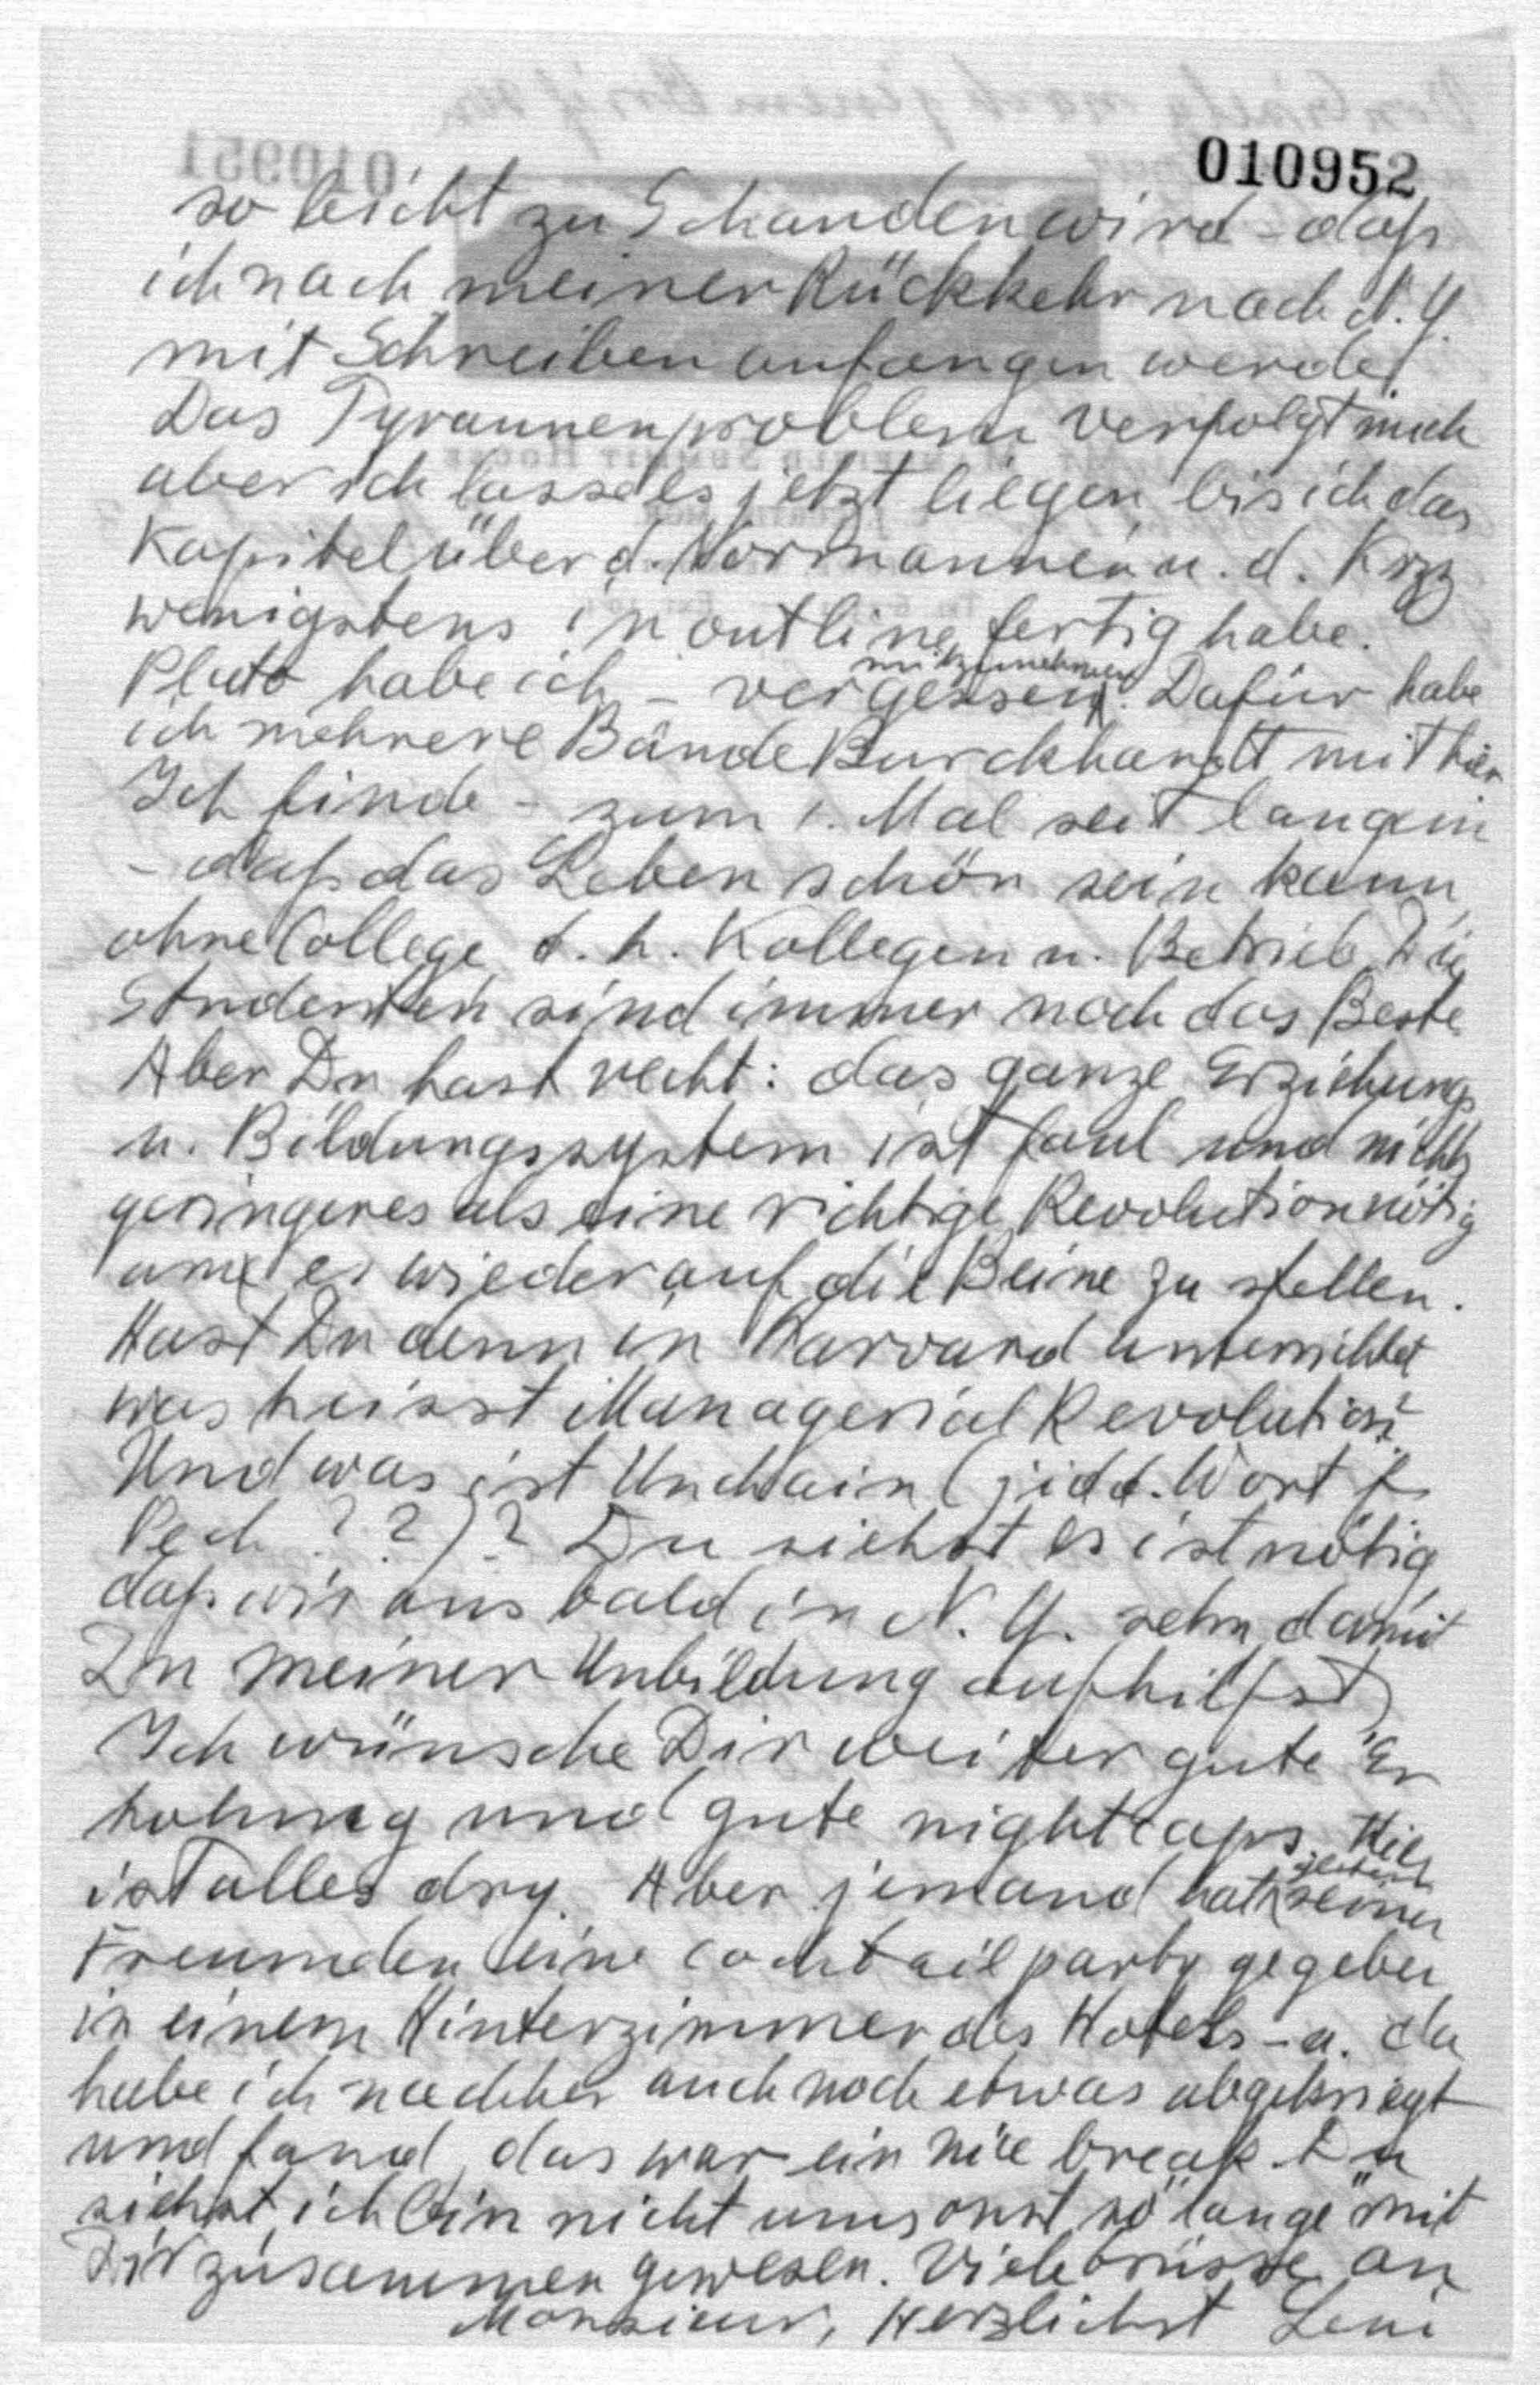 010952
so leicht zu Schanden wird - daß
ich nach meiner Rückkehr nach N.Y.
mit Schreiben anfangen werde.
Das Tyrannenproblem verfolgt mich
aber ich lasse es jetzt liegen bis ich das
Kapitel über d. Normannen u. d. Krzz
wenigstens in outline fertig habe.
Plato habe ich - vergessen mitzunehmen. Dafür habe
ich mehrere Bände Burckhardt mit hier
Ich finde - zum 1. Mal seit langem
- daß das Leben schön sein kann,
ohne College d. h. Kollegen u. Betrieb. Die
Studenten sind immer noch das Beste
Aber Du hast recht: das ganze Erziehungs
u. Bildungssystem ist faul und nichts
geringeres als eine richtige Revolution nötig
um es wieder auf die Beine zu stellen.
Hast Du denn in Harvard unterrichtet
was heisst Managerial Revolution?
Und was ist Unchain (jidd. Wort f.
Pech ? ?)? Du siehst es ist nötig
daß wir uns bald in N.Y. sehn damit
Du meiner Unbildung aufhilfst
Ich wünsche Dir weiter gute Er
holung und gute nightcaps. Hier
ist alles dry. Aber jemand hat gestern seinen
Freunden eine cocktail party gegeben
in einem Hinterzimmer des Hotels - u. da
habe ich nachher auch noch etwas abgekriegt
und fand das war ein nice break. Du
siehst, ich bin nicht umsonst so "lange" mit
Dir zusammen gewesen. Viele Grüsse an
Monsieur, Herzlichst Leni